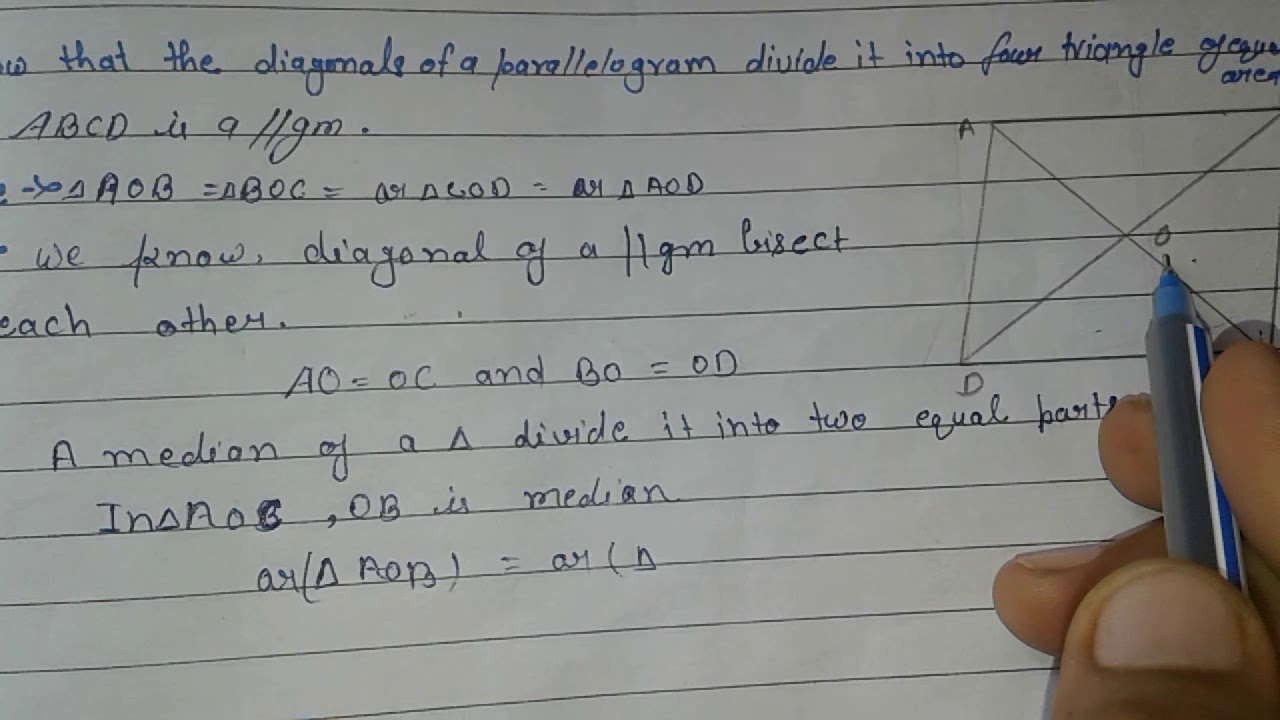 that the diagonals of a parallelogram divide it into four triangle of
area
ABCD is a //gm.
△AOB = △BOC = ar △COD = ar △AOD
we know, diagonal of a //gm bisect
each other.
AO = OC and BO = OD
A median of a △ divide it into two equal parts
In △AOC, OB is median
ar(△AOB) = ar(△
A
O
D